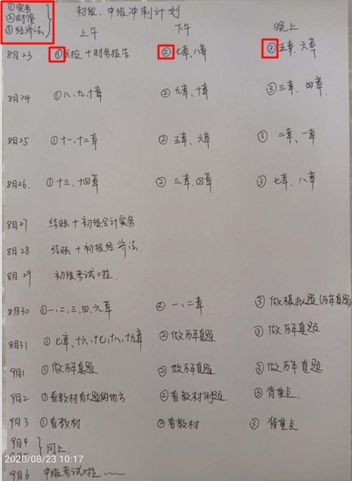 ①实务
②财管
③经济法
初级、中级冲刺计划
上午 下午 晚上
8月23 ①长投+财务报告 ②七章、八章 ③五章、六章
8月24 ①八、九、十章 ②九章、十章 ③三章、四章
8月25 ①十一、十二章 ②五章、六章 ③二章、一章
8月26. ①十三、十四章 ②三章、四章 ③七章、八章
8月27 结账+初级会计实务
8月28 结账+初级经济法.
8月29 初级考试
8月30 ①一、二、三、四、六章 ②一、二章 ③做模拟题(历年真题)
8月31 ①七章、十六、十七、十八、十九章 ②做历年真题 ③做历年真题
9月1 ①做历年真题 ②做历年真题 ③做历年真题
9月2 ①看教材有大题的地方 ②看教材例题 ③背重点
9月3 ①看教材 ②看教材 ③背重点
9月4
同上
2020/08/23 10:17
9月6 中级考试